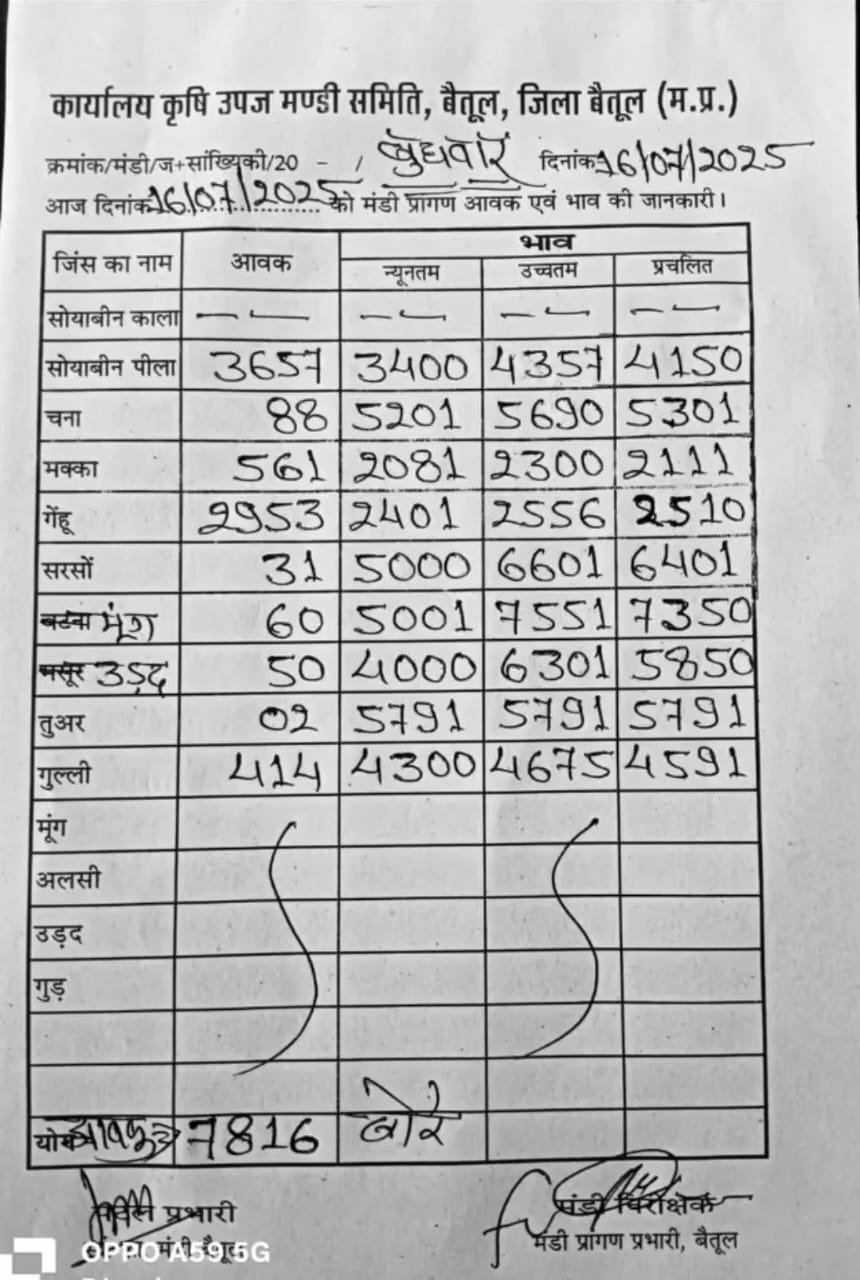 कार्यालय कृषि उपज मण्डी समिति, बैतूल, जिला बैतूल (म.प्र.)
क्रमांक/मंडी/ज+सांख्यिकी/20 - / बुधवार दिनांक 16/07/2025
आज दिनांक 16/07/2025 को मंडी प्रांगण आवक एवं भाव की जानकारी।
जिंस का नाम आवक भाव
न्यूनतम उच्चतम प्रचलित
सोयाबीन काला — — — — — — — —
सोयाबीन पीला 3657 3400 4357 4150
चना 88 5201 5690 5301
मक्का 561 2081 2300 2111
गेंहू 2953 2401 2556 2510
सरसों 31 5000 6601 6401
बटना मूंग 60 5001 7551 7350
मसूर उड़द 50 4000 6301 5850
तुअर 02 5791 5791 5791
गुल्ली 414 4300 4675 4591
मूंग
अलसी
उड़द
गुड़
7816 बोरे
प्रभारी मंडी निरीक्षक
मंडी बैतूल मंडी प्रांगण प्रभारी, बैतूल
OPPO A59 5G